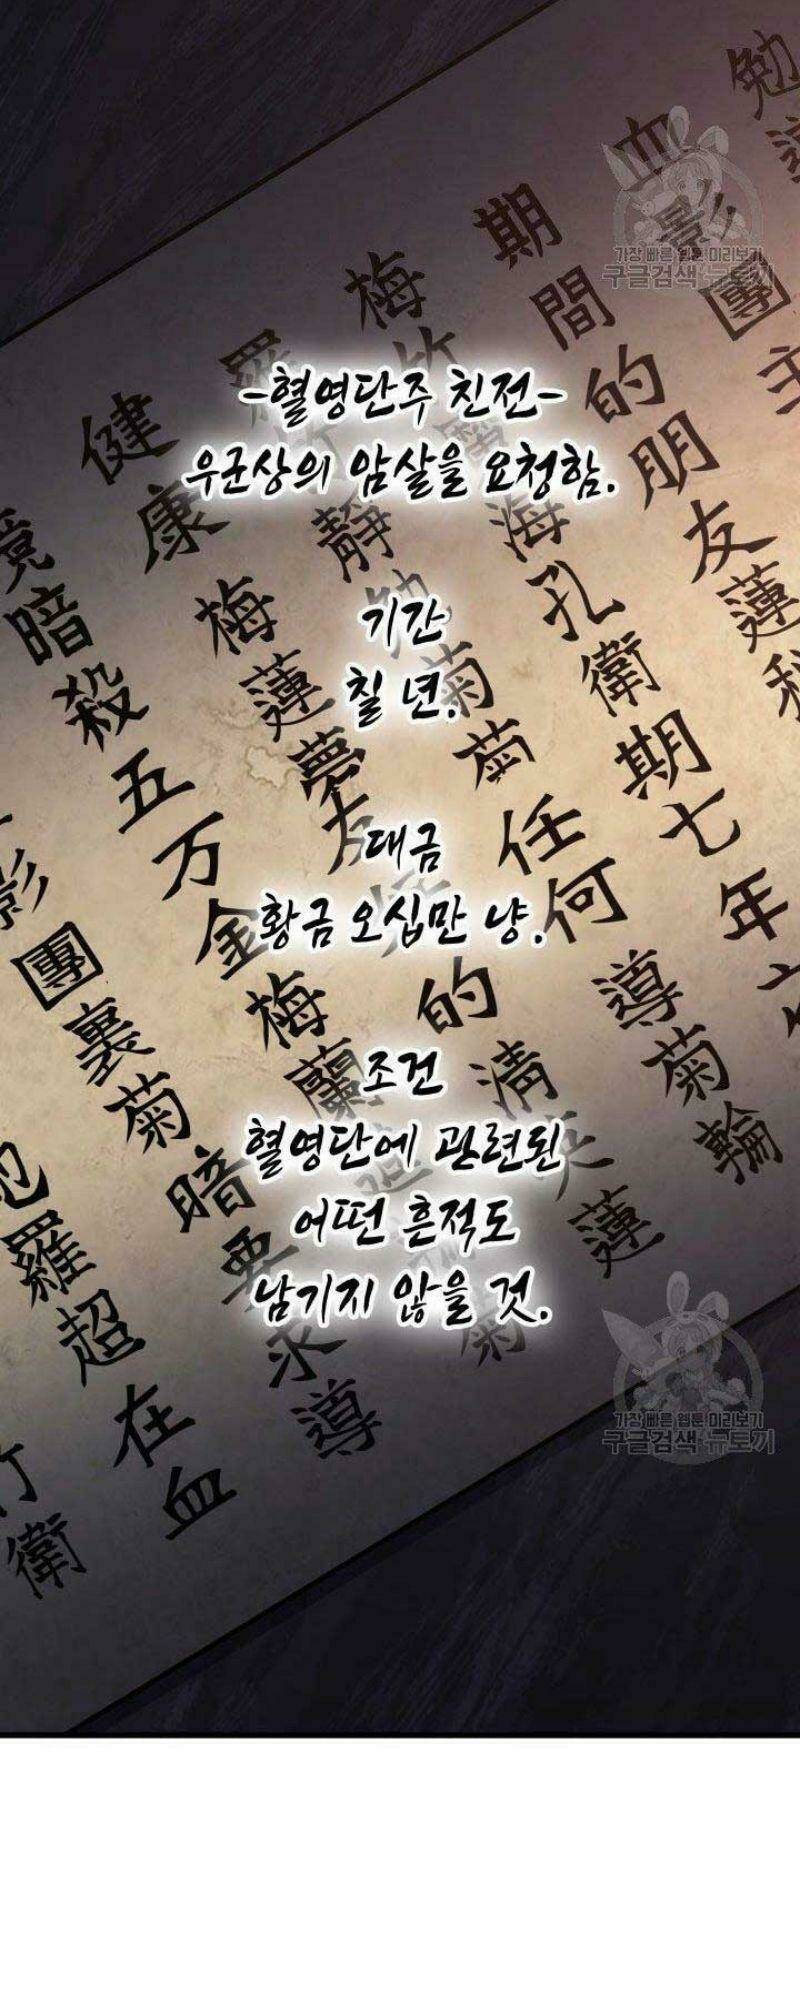 가장 빠른 웹툰 미리보기
구글검색 뉴토끼
-혈영단주 친전-
우군상의 암살을 요청함.
기간
칠 년.
대금
황금 오십만 냥.
조건
혈영단에 관련된
어떤 흔적도
남기지 않을 것.
가장 빠른 웹툰 미리보기
구글검색 뉴토끼
勉
血影團主
期間的朋友蓮
梅竹
海孔衛期七年
健康
靜勉菊菊任何導菊輪
梅蓮夢
的清英蓮
暗殺五万金梅蘭
影團裏菊暗要求導
羅超在血
竹衛